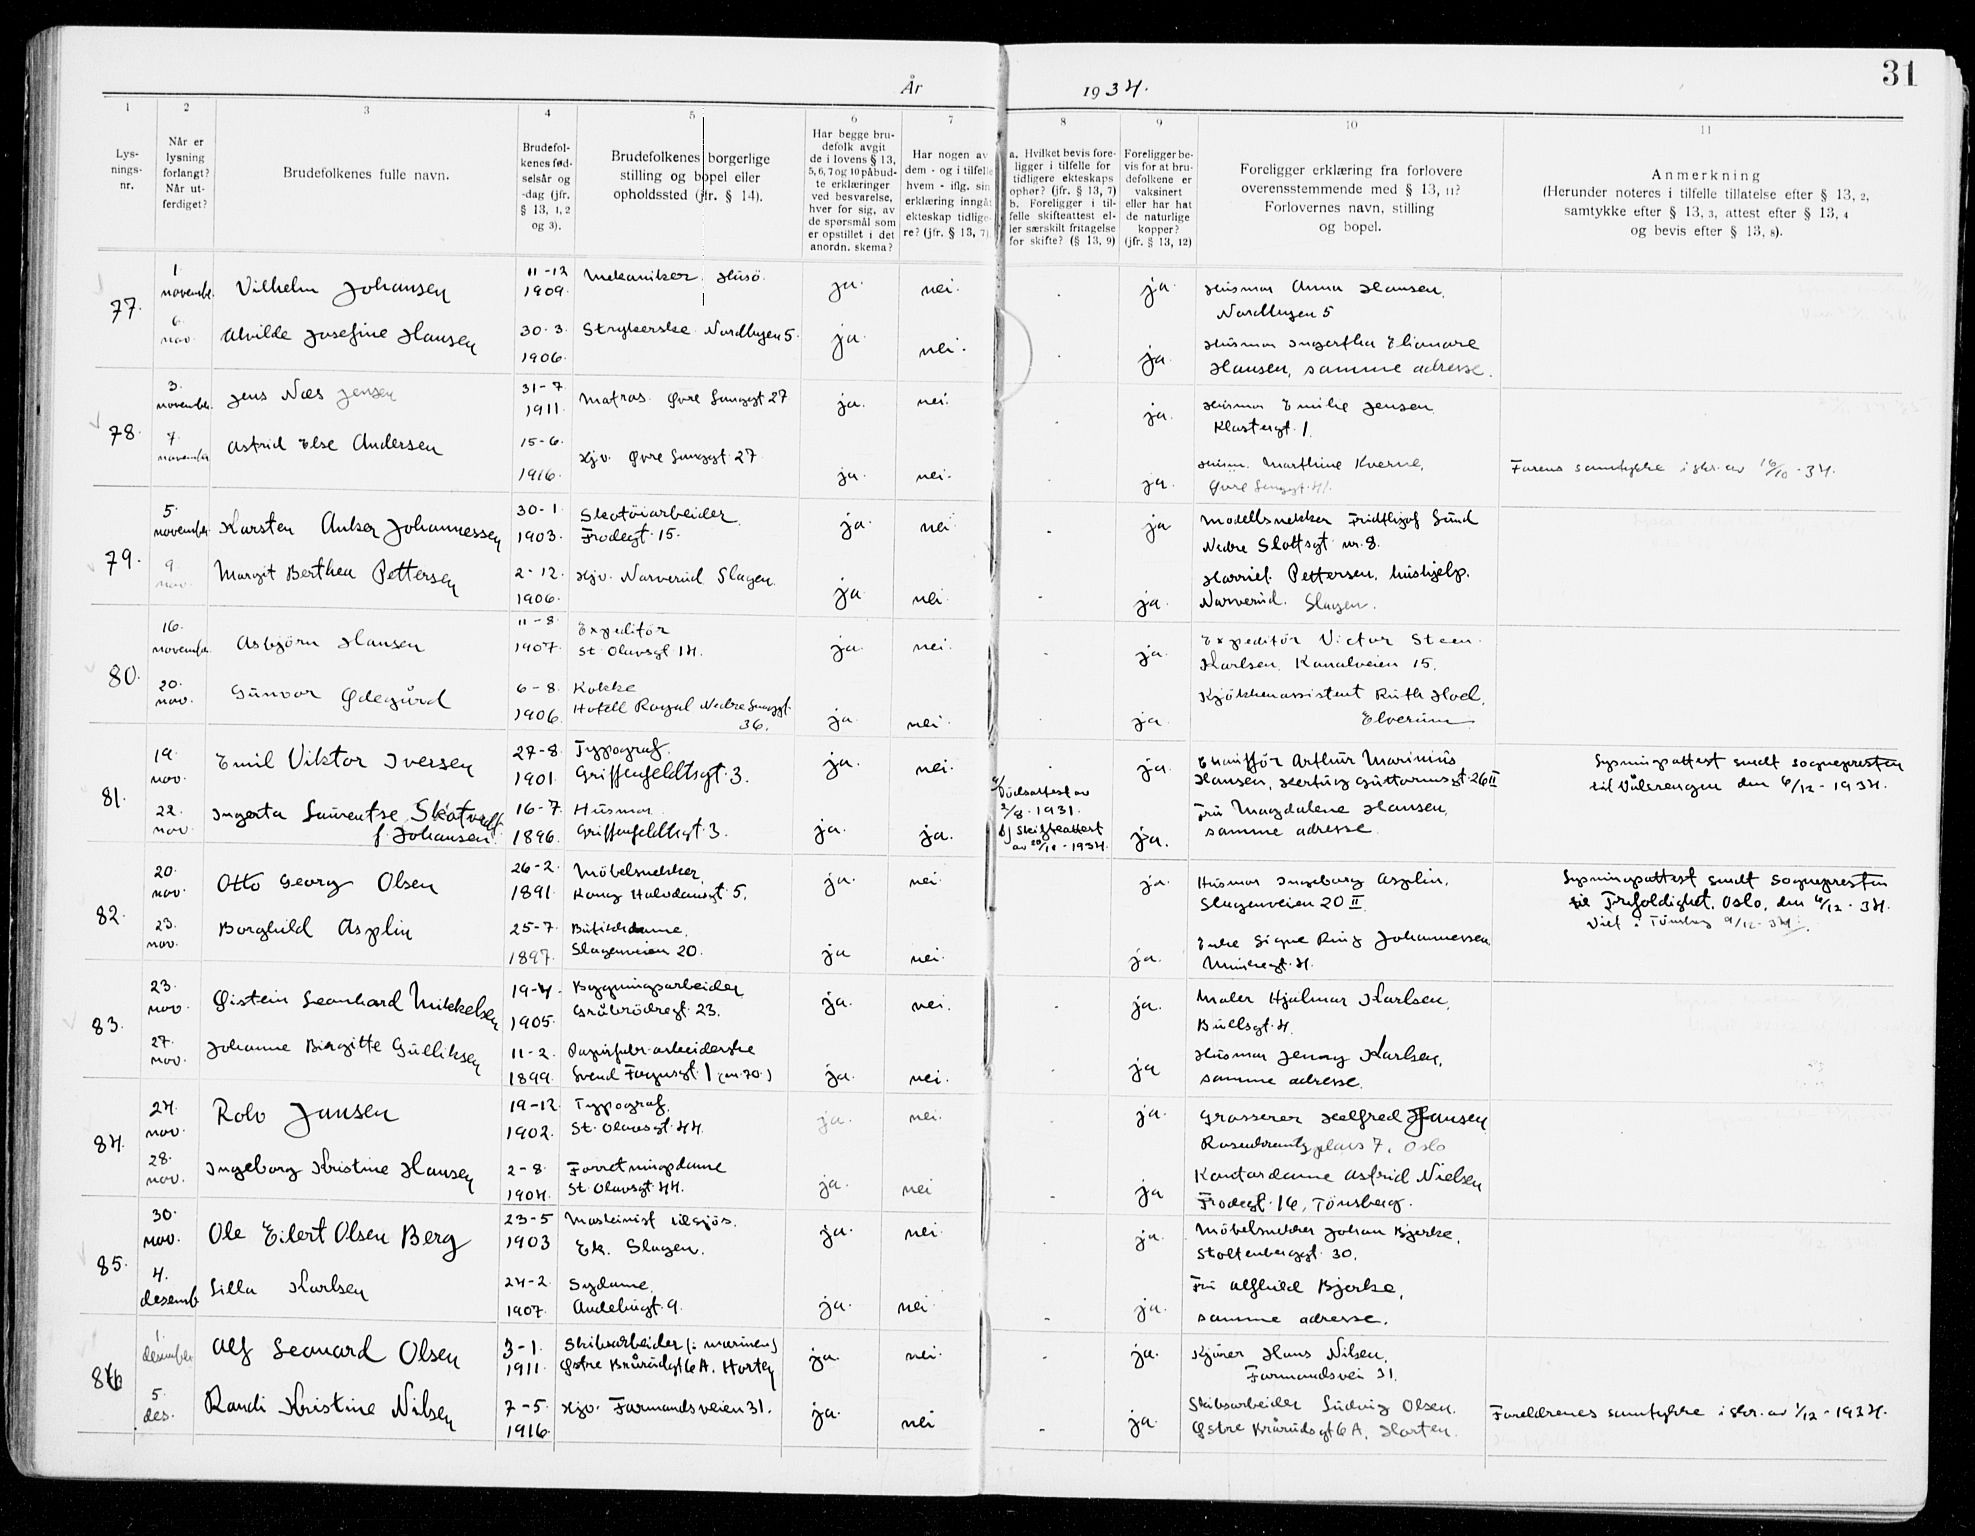 31
År 1934.
1 2 3 4 5 6 7 8 9 10 11
Lys-
nings-
nr.
Når er
lysning
forlangt?
Når ut-
ferdiget?
Brudefolkenes fulle navn.
Brudefol-
kenes fød-
selsår og
-dag (jfr.
§ 13, 1, 2
og 3).
Brudefolkenes borgerlige
stilling og bopel eller
opholdssted (jfr. § 14).
Har begge bru-
defolk avgit
de i lovens § 13,
5, 6, 7 og 10 påbud-
te erklæringer
ved besvarelse,
hver for sig, av
de spørsmål som
er opstillet i det
anordn. skema?
Har nogen av
dem - og i tilfelle
hvem - iflg. sin
erklæring inngåt
ekteskap tidlige-
re? (jfr. § 13, 7)
a. Hvilket bevis fore-
ligger i tilfelle for
tidligere ekteskaps
ophør? (jfr. § 13, 7)
b. Foreligger i til-
felle skifteattest el-
ler særskilt fritagelse
for skifte? (§ 13, 9)
Foreligger be-
vis for at bru-
defolkene er
vaksinert
eller har hat
de naturlige
kopper?
(jfr. § 13, 12)
Foreligger erklæring fra forlovere
overensstemmende med § 13, 11?
Forlovernes navn, stilling
og bopel.
Anmerkning
(Herunder noteres i tilfelle tillatelse efter § 13, 2,
samtykke efter § 13, 3, attest efter § 13, 4
og bevis efter § 13, 8).
77. 1. novembr. Vilhelm Johansen 11-12 1909. Mekaniker Husö. ja. nei. . ja. Husmor Anna Hansen,
Nordbyen 5
6. nov. Alvilde Josefine Hansen 30. 3. 1906. Strykerske Nordbyen 5. ja. nei. . ja. Husmor Ingertha Elianore
Hansen, samme adresse.
78. 3. november. Jens Næs Jensen 31-7 1911. Matros. Øvre Langgt 27 ja. nei. . ja. Husmor Emilie Jensen
Klostergt. 1.
7. november Astrid Else Andersen 15-6. 1916. Hjv. Øvre Langgt. 27 ja. nei. ja. Husm. Marthine Kverne,
Øvre Langgt. 41.
Farens samtykke i skr. av 16/10 - 34.
79. 5. november. Karsten Anker Johannessen 30-1. 1903. Skotöiarbeider.
Frodegt. 15. ja. nei. - ja Modellsnekker Fridthjof Lund
Nedre Slottsgt. nr. 8.
9. nov. Margit Berthea Pettersen 2-12. 1906. Hjv. Narverud Slagen. ja. nei. - ja. Harriet Pettersen, hushjelp.
Narverud. Slagen.
80. 16. novembr. Asbjörn Hansen 11-8. 1907. Expeditör
St. Olavsgt. 14. ja. nei. . ja. Expeditör Victor Steen
Karlsen, Kanalveien 15.
20. nov. Gunvor Ødegård 6-8. 1906. Kokke
Hotell Royal Nedre Langgt.
36. ja. nei. . ja. Kjökkenassistent Ruth Hoel,
Elverum
81. 19. nov. Emil Viktor Iversen 27-8. 1901. Typograf.
Griffenfeldtsgt. 3. ja. nei. . ja. Chauffør Arthur Marinius
Hansen, Hertug Guttormsgt. 26 II
Lysningsattest sendt sognepresten
til Vålerengen den 6/12 - 1934.
22. nov. Ingerta Laurentse Skotvedt
f. Johansen. 16-7. 1896. Husmor.
Griffenfeldtsgt. 3. ja. ja. a/ Dødsattest av
2/8. 1931.
b) Skifteattest
av 20/11 - 1934. ja. Fru Magdalene Hansen,
samme adresse.
82. 20. nov. Otto Georg Olsen 26-2. 1891. Möbelsnekker,
Kong Halvdansgt 5. ja. nei. ja. Husmor Ingeborg Asplin,
Slagenveien 20 II.
Lysningsattest sendt sognepresten
til Trefoldighet, Oslo, den 6/12 - 34.
Viet i Tönsberg 9/12 - 34.
23. nov. Borghild Asplin 25-7. 1897. Butikkdame,
Slagenveien 20. ja nei. ja. Enke Signe Ring Johannessen
Munkegt. 4.
83. 23. nov. Øistein Leonhard Mikkelsen 19-4. 1905. Bygningsarbeider
Gråbrödregt. 23. ja. nei. . ja. Maler Hjalmar Karlsen,
Bullsgt. 4.
27. nov. Johanne Birgitte Gulliksen 11-2. 1899. Papirfabr. arbeiderske
Svend Foynsgt. 1 (nr. 70.) ja. nei. ja Husmor Jenny Karlsen,
samme adresse.
84. 24. nov. Rolv Jansen 19-12 1902. Typograf.
St. Olavsgt. 44. ja. nei. ja. Grosserer Helfred Jansen
Rosenkrantz plass 7, Oslo
28. nov. Ingeborg Kristine Hansen 2-8. 1904. Forretningsdame
St. Olavsgt. 44. ja. nei - ja Kontordame Astrid Nielsen
Frodegt. 16, Tönsberg.
85. 30. nov. Ole Eilert Olsen Berg 23-5 1903 Maskinist tilsjös.
Ek. Slagen. ja. nei. ja. Möbelsnekker Johan Bjerke,
Stoltenberggt. 30.
4. desemb Lilla Karlsen 24-2. 1907. Sydame.
Andebugt. 9. ja. nei - ja. Fru Alfhild Bjerke,
samme adresse.
86 1. desember Alf Leonard Olsen 3-1. 1911. Skibsarbeider (i marinen)
Østre Brårudgt 6 A. Horten ja. nei. - ja. Kjörer Hans Nilsen,
Farmandsvei 31.
5. des. Randi Kristine Nilsen 7-5. 1916. Hjv. Farmandsveien 31. ja. nei - ja. Skibsarbeider Ludvig Olsen.
Østre Brårudsgt 6 A, Horten.
Foreldrenes samtykke i skr. av 1/12 - 1934.